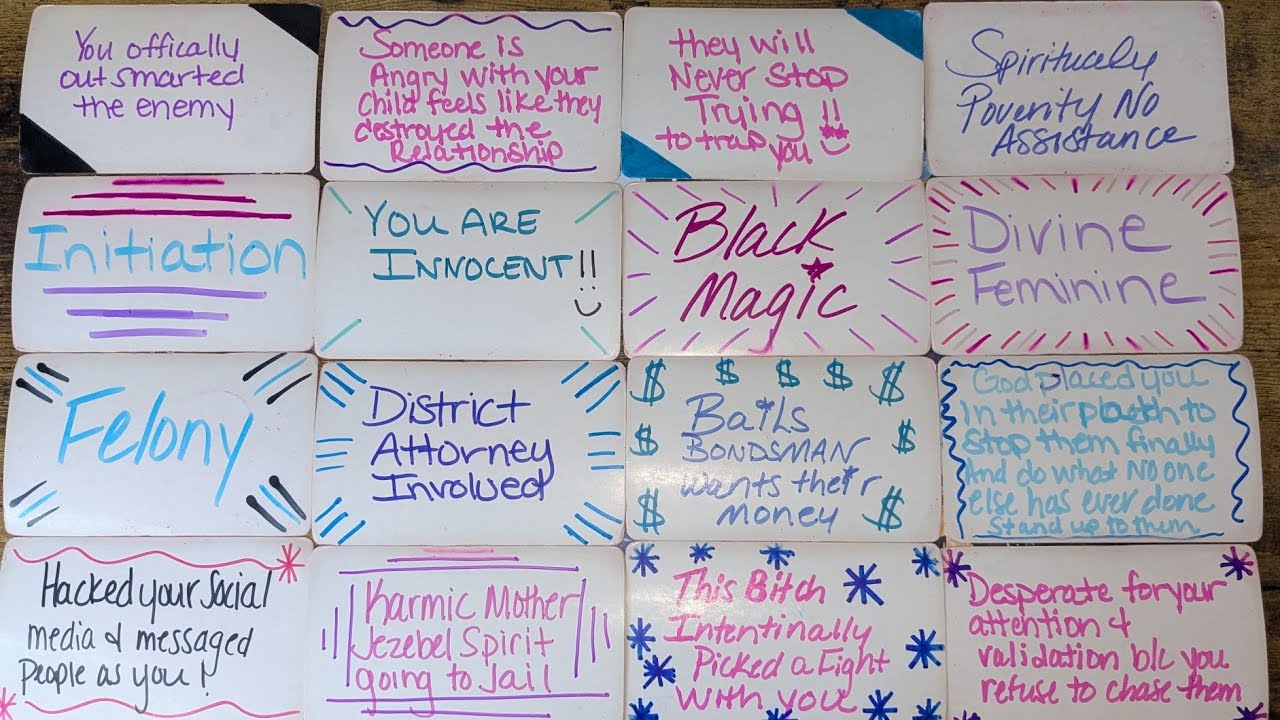 You offically
out smarted
the enemy
Someone is
Angry with your
child feels like they
destroyed the
Relationship
they will
Never Stop
Trying !!
to trap you
Spiritually
Poverity No
Assistance
Initiation
YOU ARE
INNOCENT!!
Black
Magic
Divine
Feminine
Felony
District
Attorney
Involved
Bails
BONDSMAN
wants their
money
God placed you
in their to
stop them finally
And do what No one
else has ever done
Stand up to them
Hacked your Social
media & messaged
People as you!
Karmic Mother
Jezebel Spirit
going to Jail
This Bitch
Intentinally
Picked a Fight
with you
Desperate for your
attention &
validation b/c you
refuse to chase them